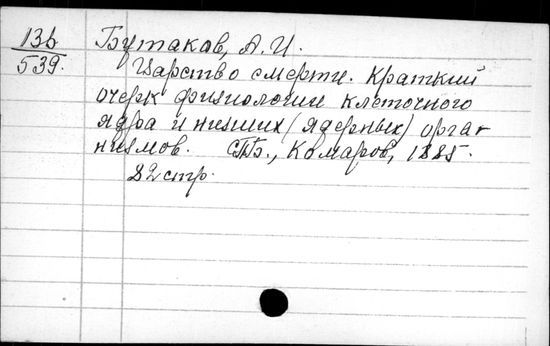 136
539.
Бутаков, А. И.
Царство смерти. Краткий
очерк физиологии клеточного
ядра и низших (ядерных) орга-
низмов. СПб., Комаров, 1885.
82 стр.